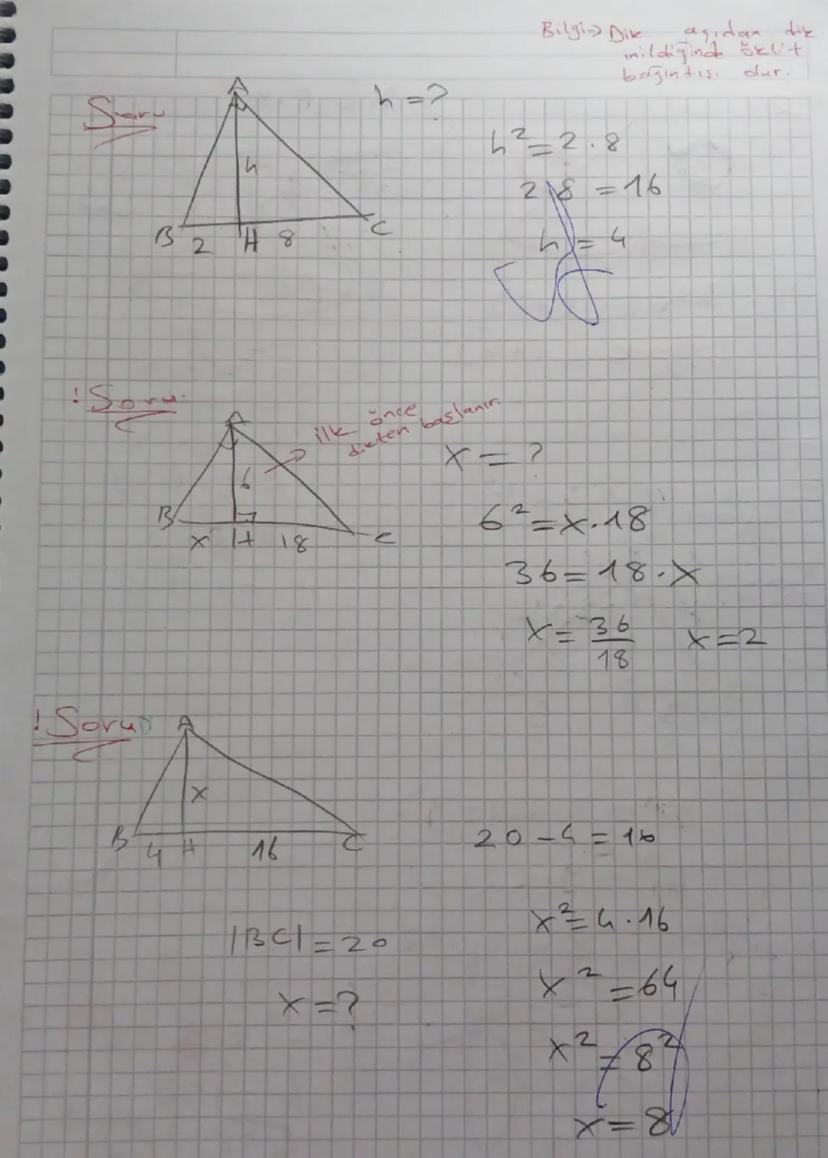 Bilgi→ Dik açıdan dik
inildiğinde öklit
bağıntısı dur.
Soru
A
h = ?
h
B 2 H 8 C
h² = 2 . 8
2 8 = 16
h = 4
! Soru
A
ilk önce
dikten başlanır
6
B x H 18 C
x = ?
6² = x . 18
36 = 18 . x
x = 36/18 x = 2
! Soru
A
x
B 4 H 16 C
20 - 4 = 16
|BC| = 20
x = ?
x² = 4 . 16
x² = 64
x² = 8²
x = 8